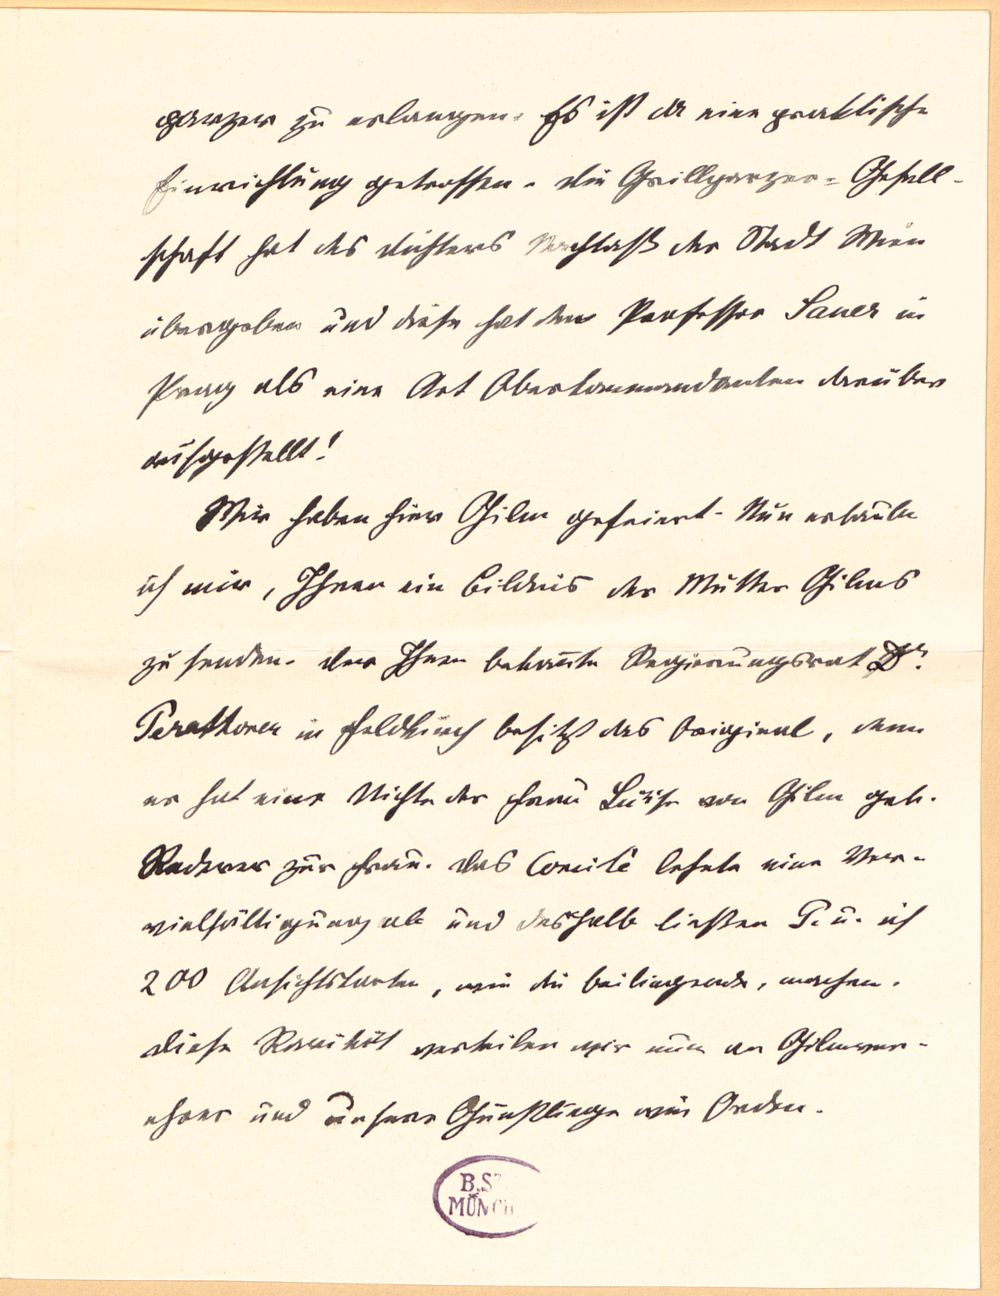 parzer zu erlangen. Es ist da eine praktische
Einrichtung getroffen. Die Grillparzer-Gesell-
schaft hat des Dichters Nachlaß der Stadt Wien
übergeben und diese hat den Professor Sauer in
Prag als eine Art Oberkommandanten darüber
aufgestellt!
Wir haben hier Gilm gefeiert. Nun erlaube
ich mir, Ihnen ein Bildnis der Mutter Gilms
zu senden. Der Ihnen bekannte Regierungsrat Dr.
Perathoner in Feldkirch besitzt das Original, denn
er hat eine Nichte der Frau Luise von Gilm geb.
Rederer zur Frau. Das Comité lehnte eine Ver-
vielfältigung ab und deshalb ließen P. u. ich
200 Ansichtskarten, wie die beiliegende, machen.
Diese Rarität verteilen wir nun an Gilmver-
ehrer und unsere Günstlinge wie Orden.
B.ST
MÜNCH